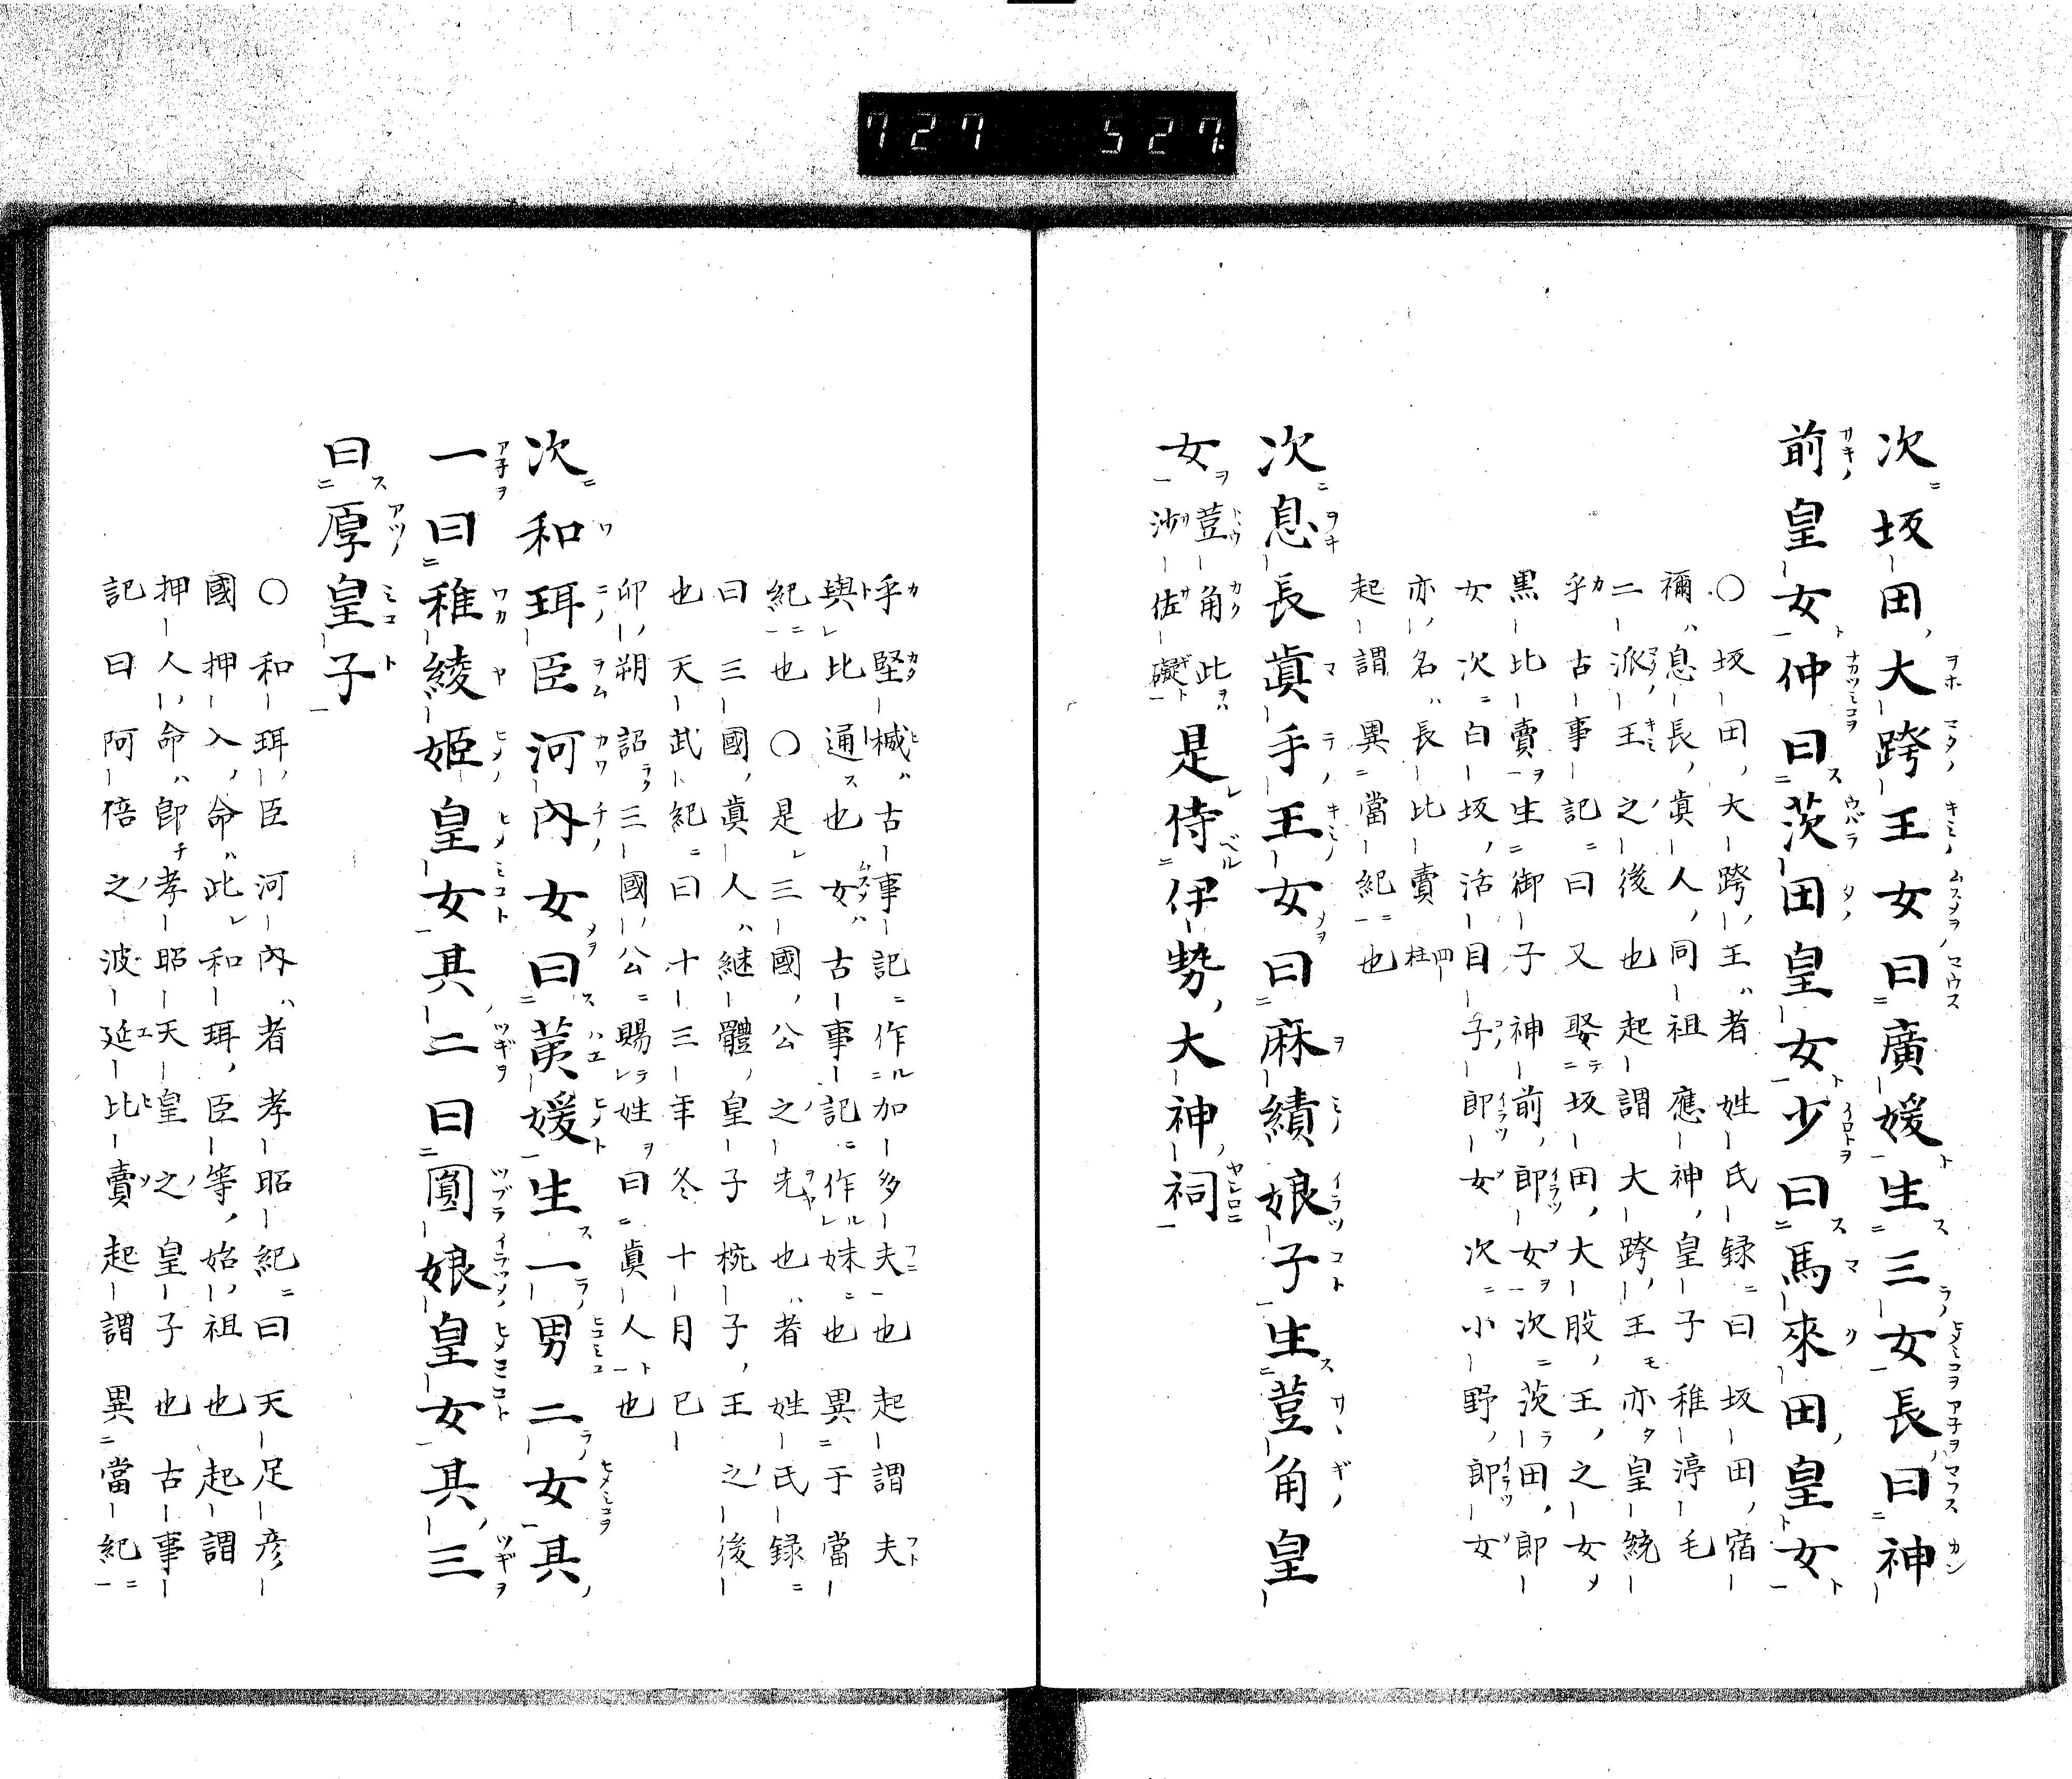 727 527.
次坂田大跨王女曰廣媛生三女長曰神
前皇女仲曰茨田皇女少曰馬來田皇女
〇坂田大跨王者姓氏録曰坂田宿
禰息長眞人同祖應神皇子稚渟毛
二派王之後也起謂大跨王亦皇統
乎古事記曰又娶坂田大股王之女
黒比賣生御子神前郎女次茨田郎
女次白坂活目子郎女次小野郎女
亦名長比賣四柱
起謂異當紀也
次息長眞手王女曰麻績娘子生荳角皇
女荳角此沙佐礙是侍伊勢大神祠
乎堅楲古事記作加多夫也起謂夫
與比通也女古事記作妹也異于當
紀也〇是三國公之先也者姓氏録
曰三國眞人継體皇子椀子王之後
也天武紀曰十三年冬十月已
卯朔詔三國公賜姓曰眞人也
次和珥臣河內女曰荑媛生一男二女其
一曰稚綾姫皇女其二曰圓娘皇女其三
曰厚皇子
〇和珥臣河內者孝昭紀曰天足彦
國押入命此和珥臣等始祖也起謂
押人命即孝昭天皇之皇子也古事
記曰阿倍之波延比賣起謂異當紀